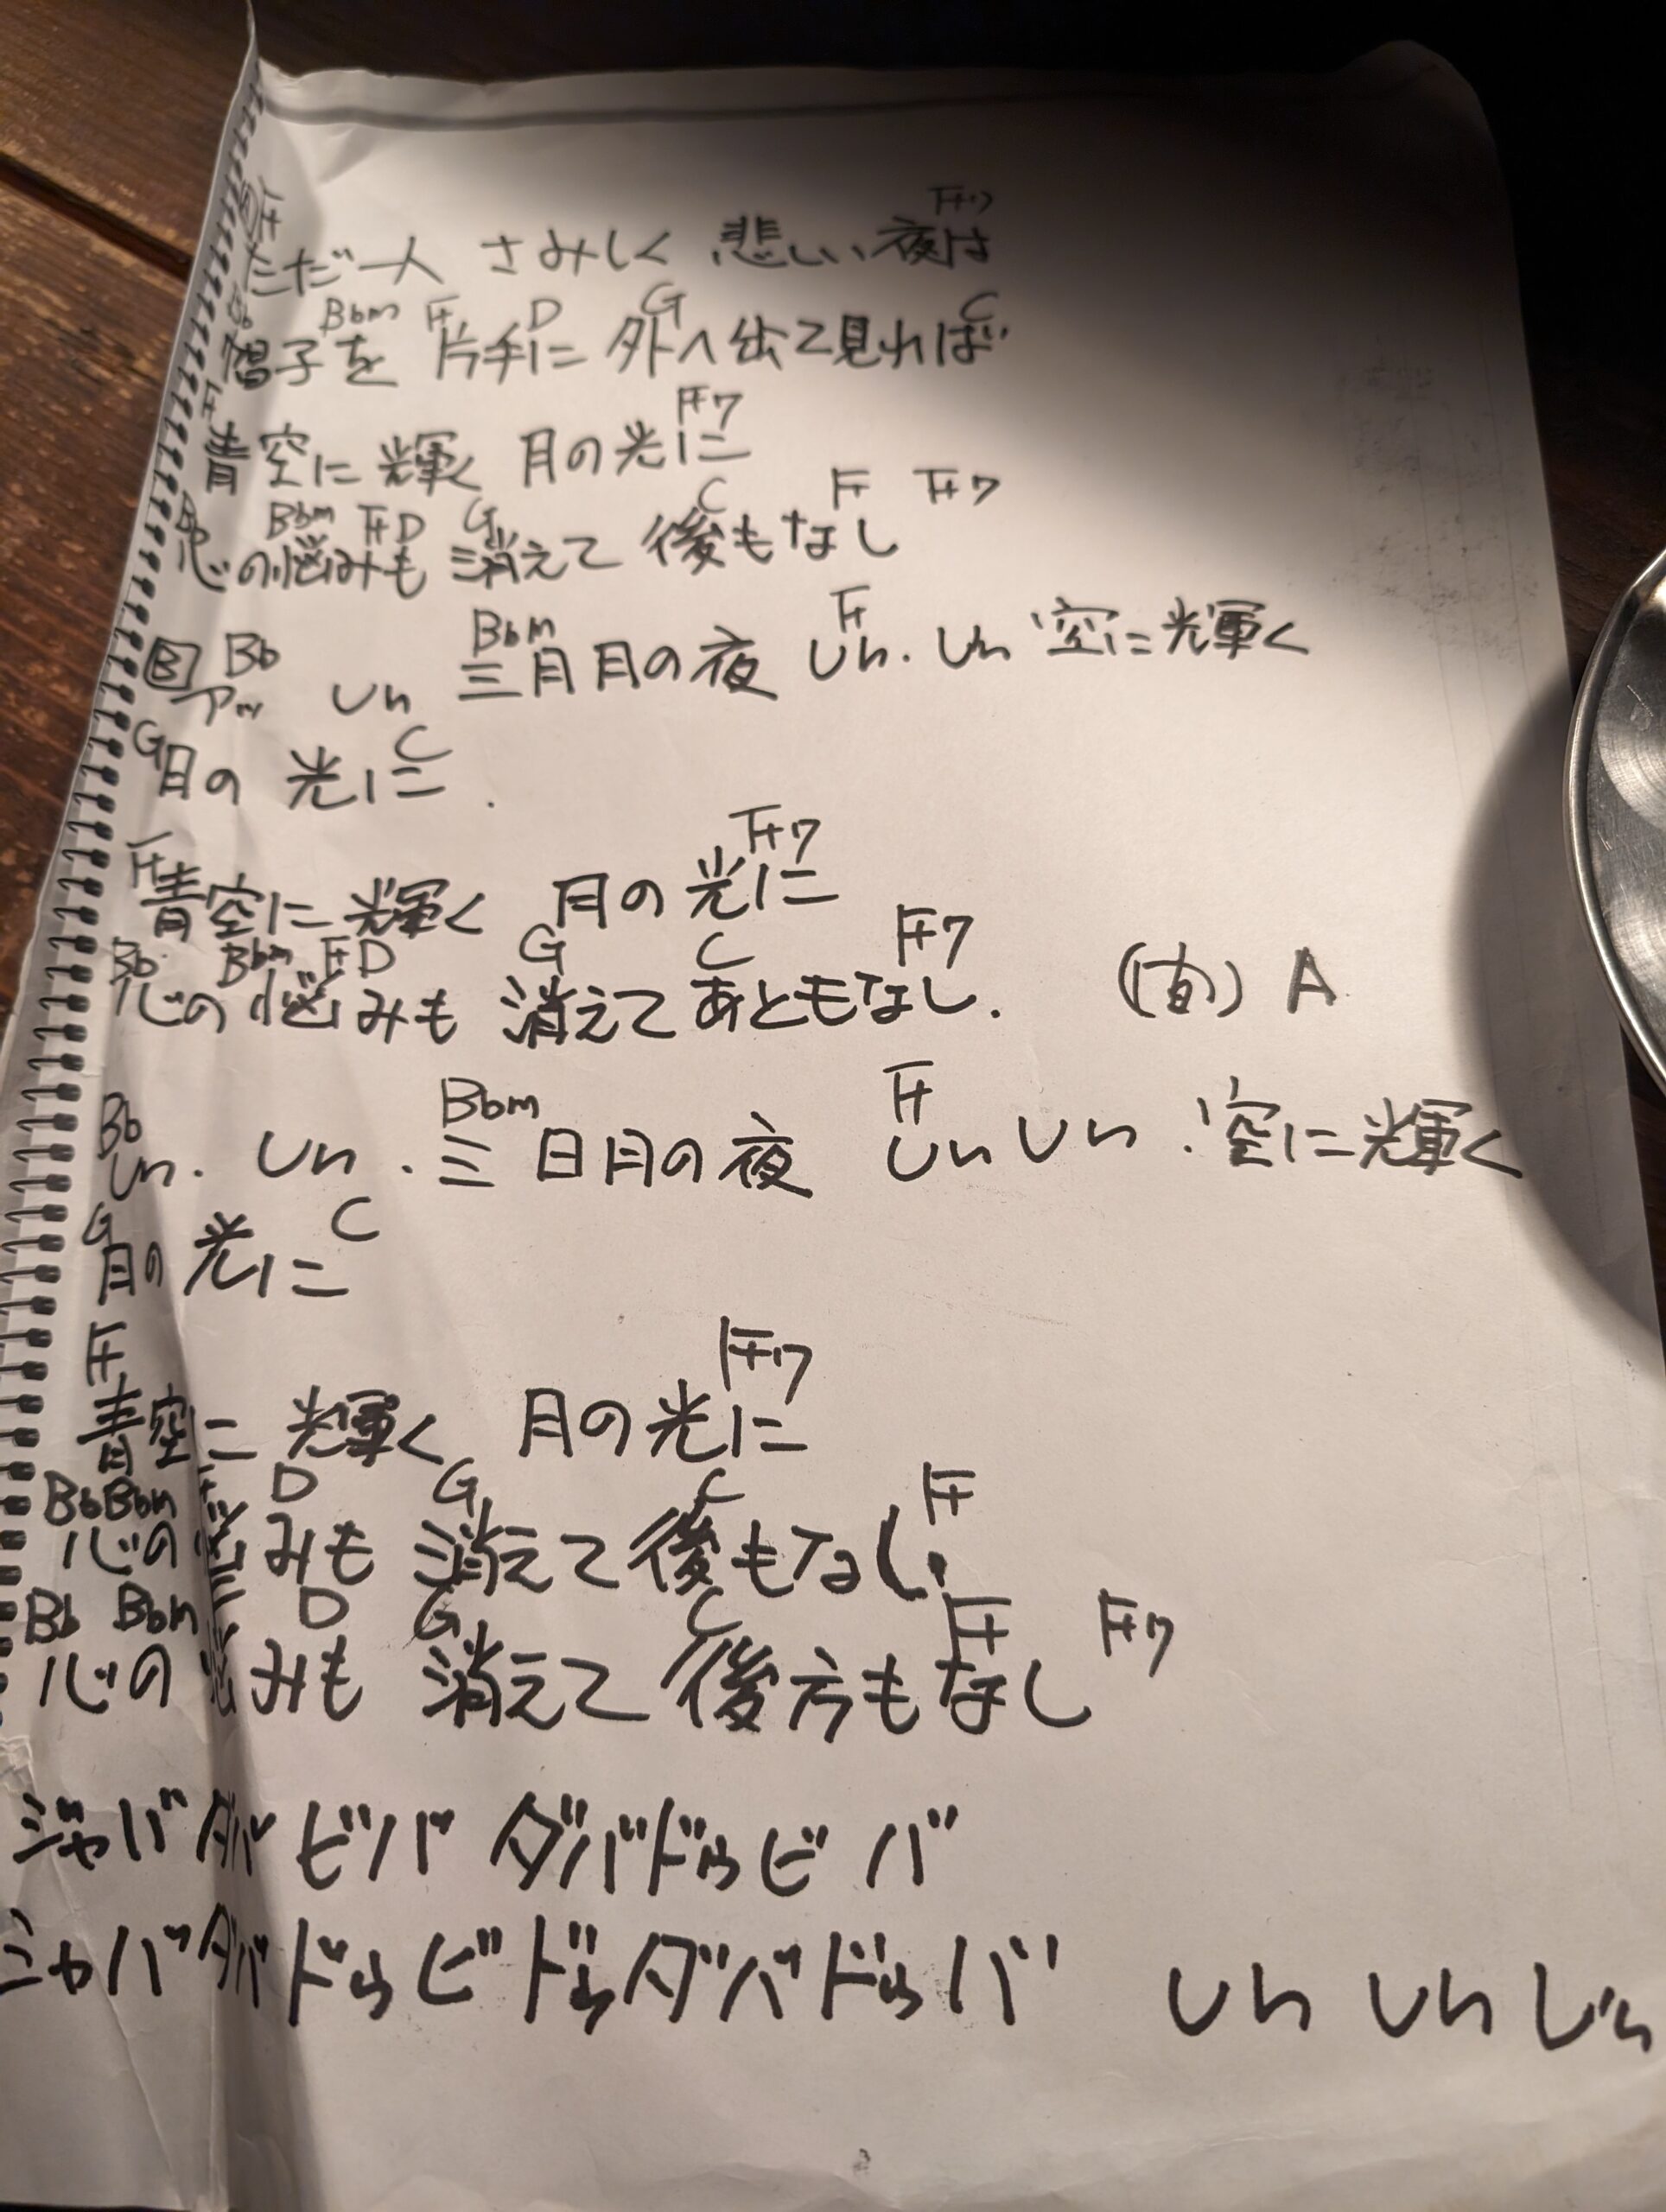 F F7
ただ一人 さみしく 悲しい夜は
Bb Bbm F D G C
帽子を 片手に 外へ出て見れば
F F7
青空に輝く 月の光に
Bb Bbm F D G C F F7
心の悩みも 消えて 後もなし
B Bb Bbm F
アッ しん 三日月の夜 しん.しん 空に輝く
G C
日の 光に.
F F7
青空に輝く 月の光に
Bb Bbm F D G C F7
心の悩みも 消えてあともなし. (間) A
Bb Bbm F
しん. しん. 三日月の夜 しんしん.空に輝く
G C
月の光に
F F7
青空に 輝く 月の光に
Bb Bbm F D G C F
心の悩みも 消えて後もなし.
Bb Bbm F D G C F F7
心の悩みも 消えて 後方もなし
ジャバダバ ビバ ダバドゥビ バ
ジャバダバドゥビドゥダバドゥバ しん しん じん